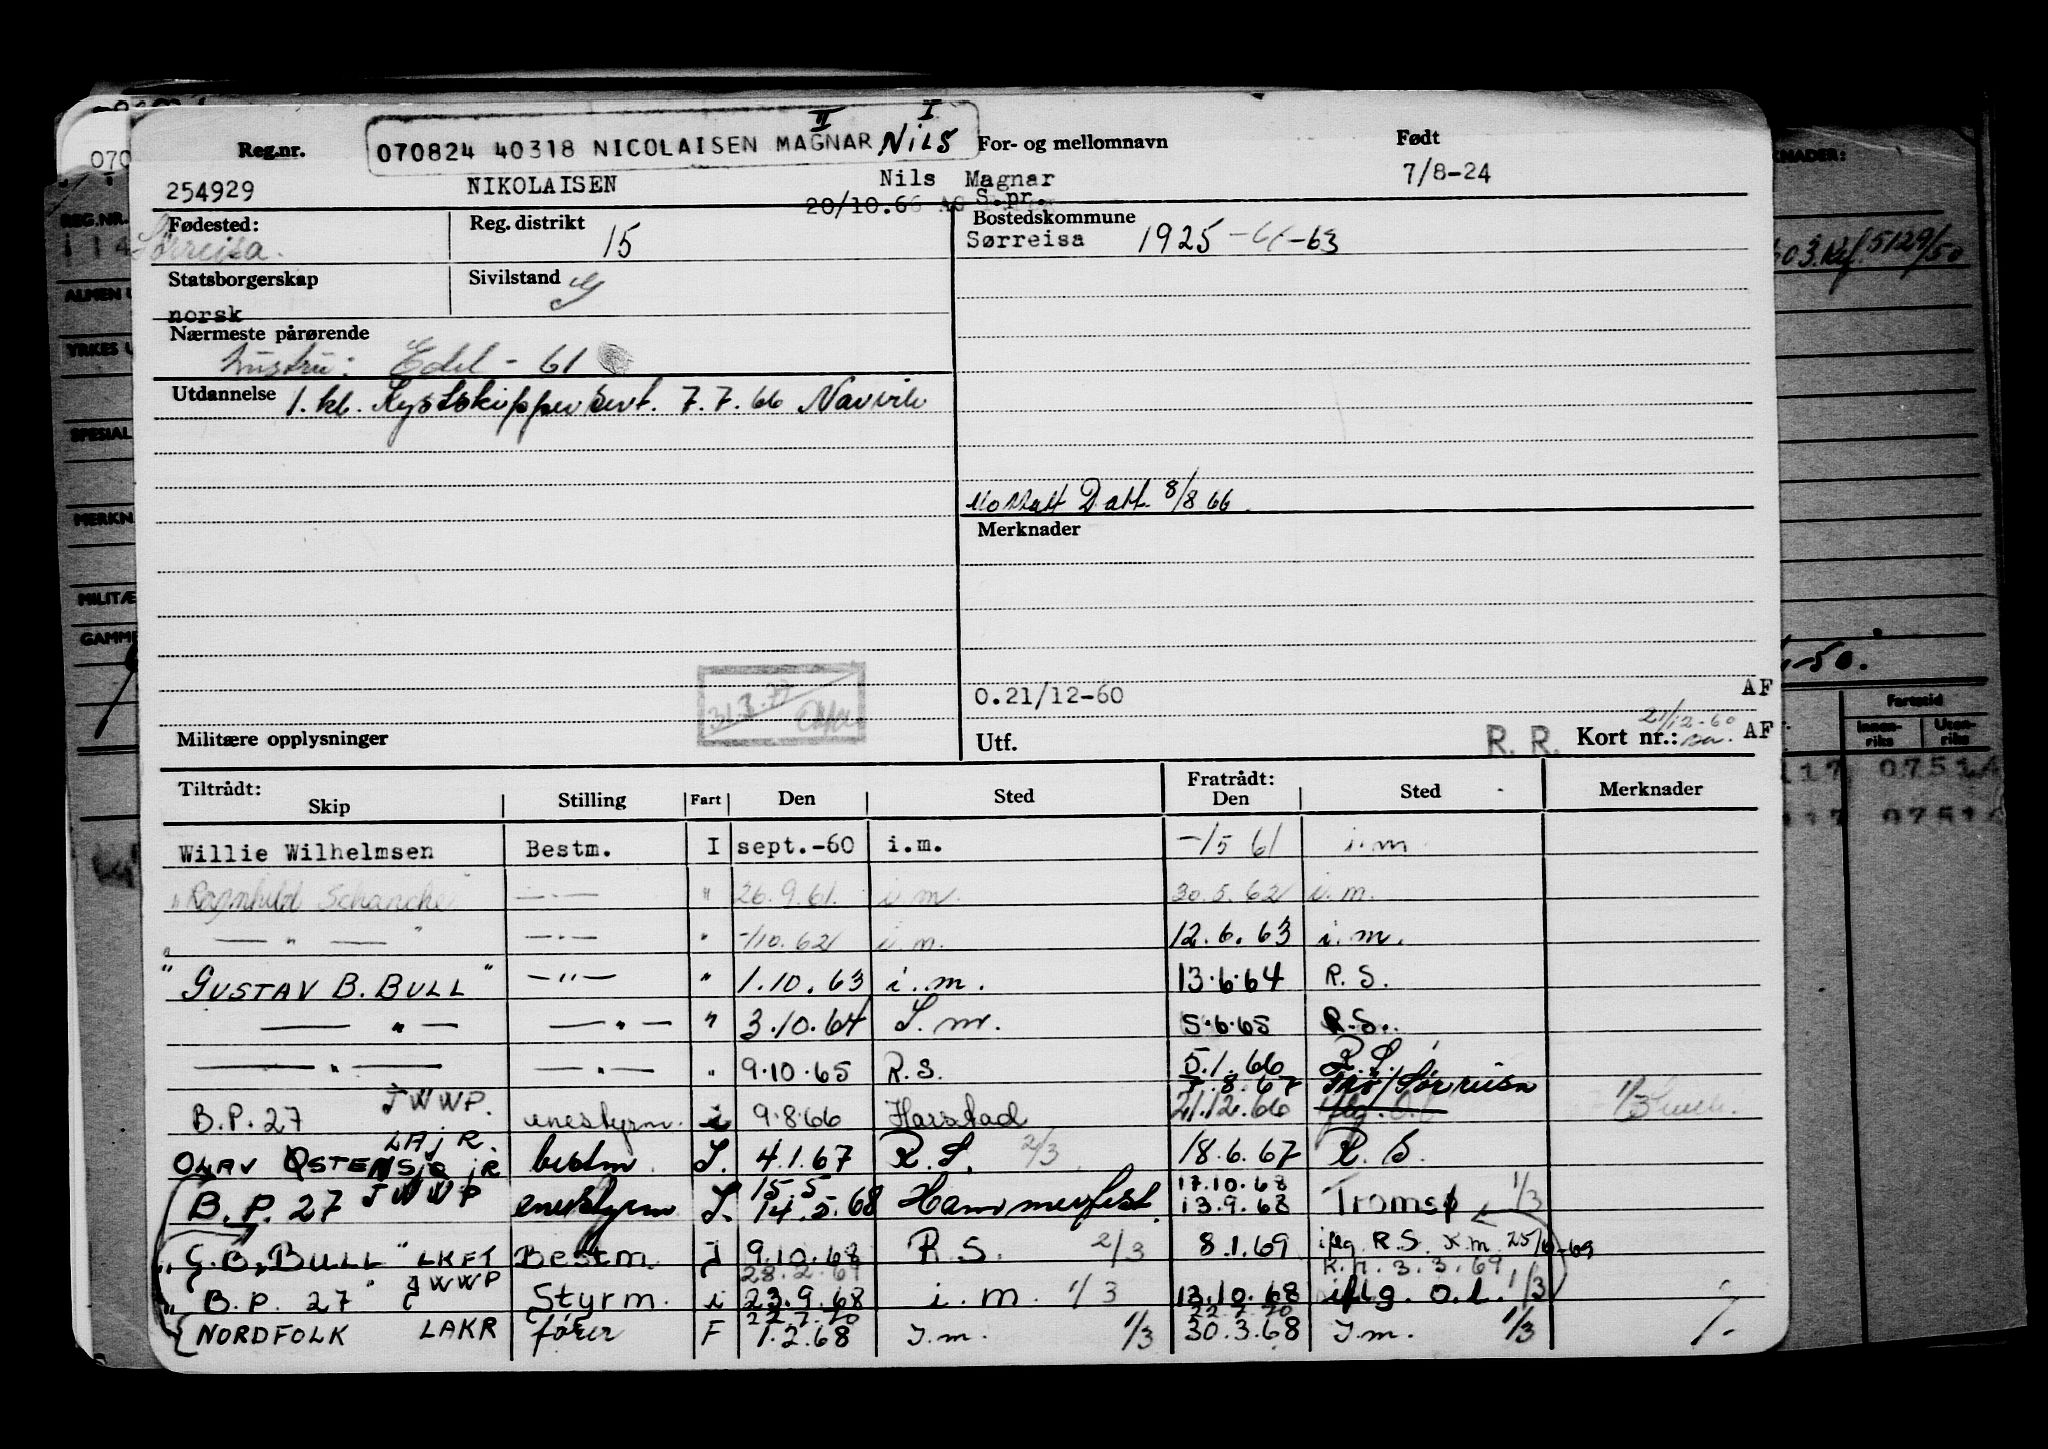 II I
Reg.nr. 070824 40318 NICOLAISEN MAGNAR NILS For- og mellomnavn Født
254929 NIKOLAISEN Nils Magnar 7/8-24
20/10.66 S.pr.
Fødested: Reg. distrikt 15 Bostedskommune
Sørreisa. Sørreisa 1925 -61-63
Statsborgerskap Sivilstand G
norsk
Nærmeste pårørende
hustru: Edel - 61
Utdannelse 1. kl. Kystskippersert. 7.7.66 Narvik
Mottatt Datt. 8/8 66.
Merknader
31.3.77
O.21/12-60 AF
Militære opplysninger Utf. R. R. Kort nr.: 21/12-60 AF
Tiltrådt: Fratrådt:
Skip Stilling Fart Den Sted Den Sted Merknader
Willie Wilhelmsen Bestm. I sept.-60 i.m. -/5 61 i.m
"Ragnhild Schanche" —.— " 26.9.61. i m. 30.5.62 i.m.
" — " — " —.— " -/10.62 i.m. 12.6.63 i.m.
"GUSTAV B. BULL" —"— " 1.10.63 i.m. 13.6.64 R.S.
— " — — " — " 3.10.64 I.m. 5.6.65 R.S.
— " — — " — " 9.10.65 R.S. 5.1.66 R.S.
B.P.27 JWWP. enestyrm. i 9.8.66 Harstad 21.12.66 7.8.67 Sørreisa 1/3
OLAV ØSTENSJØ jR LAJR. bestm. I. 4.1.67 R.S. 2/3 18.6.67 R.S.
B.P. 27 JWWP enestyrm I. 15.5 14.5.68 Hammerfest. 17.10.68 13.9.68 Tromsø 1/3
"G.B. BULL" LKFT Bestm. I 9.10.68 R.S. 2/3 8.1.69 iflg. R.S. K.m. 25/6-69
28.2.69 K.m. 3.3.69
"B.P. 27" JWWP Styrm. i 23.9.68 i.m. 1/3 13.10.68 iflg. O.l. 1/3
22.7.70
NORDFOLK LAKR fører F 1.2.68 I.m. 1/3 30.3.68 I.m. 1/3
070
REG.NR.
114
ALMEN U
YRKES U
SPESIAL
MERKN
MILITÆ
GAMME
KNADER:
603.Kf 5129/50
-50.
Fartstid
Innen-riks Uten-riks
117 07514
117 07514